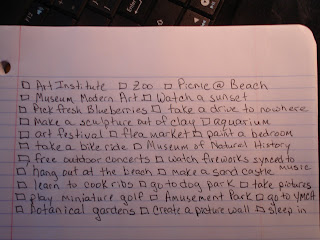 □ Art Institute □ Zoo □ Picnic @ Beach
□ Museum Modern Art □ Watch a sunset
□ Pick fresh Blueberries □ take a drive to nowhere
□ Make a sculpture out of clay □ aquarium
□ art festival □ flea market □ paint a bedroom
□ take a bike ride □ Museum of Natural History
□ free outdoor concerts □ watch fireworks synced to music
□ hang out at the beach □ make a sand castle
□ learn to cook ribs □ go to dog park □ take pictures
□ play miniature golf □ Amusement Park □ go to YMCA
□ botanical gardens □ Create a picture wall □ sleep in